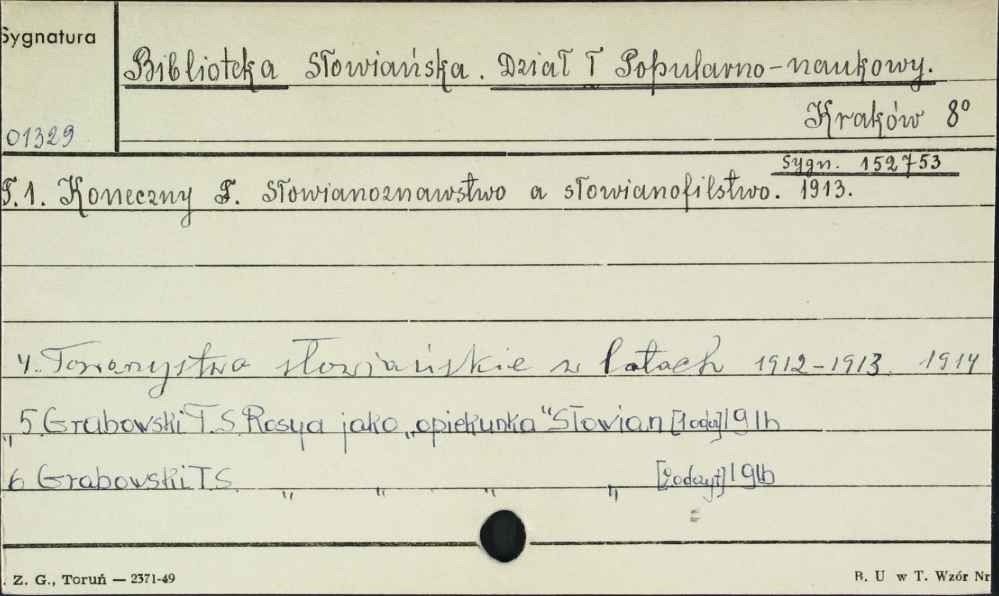 Sygnatura
Biblioteka Słowiańska. Dział I Popularno-naukowy.
Kraków 8°
01329
Sygn. 152753
T.1. Koneczny F. Słowianoznawstwo a słowianofilstwo. 1913.
4. Towarzystwa słowiańskie w latach 1912-1913. 1914
" 5 Grabowski T.S. Rosya jako „opiekunka" Słowian [1 odczyt] 1916
6 Grabowski T.S. " " " " [2 odczyt] 1916
. Z. G., Toruń — 2371-49
B. U w T. Wzór Nr